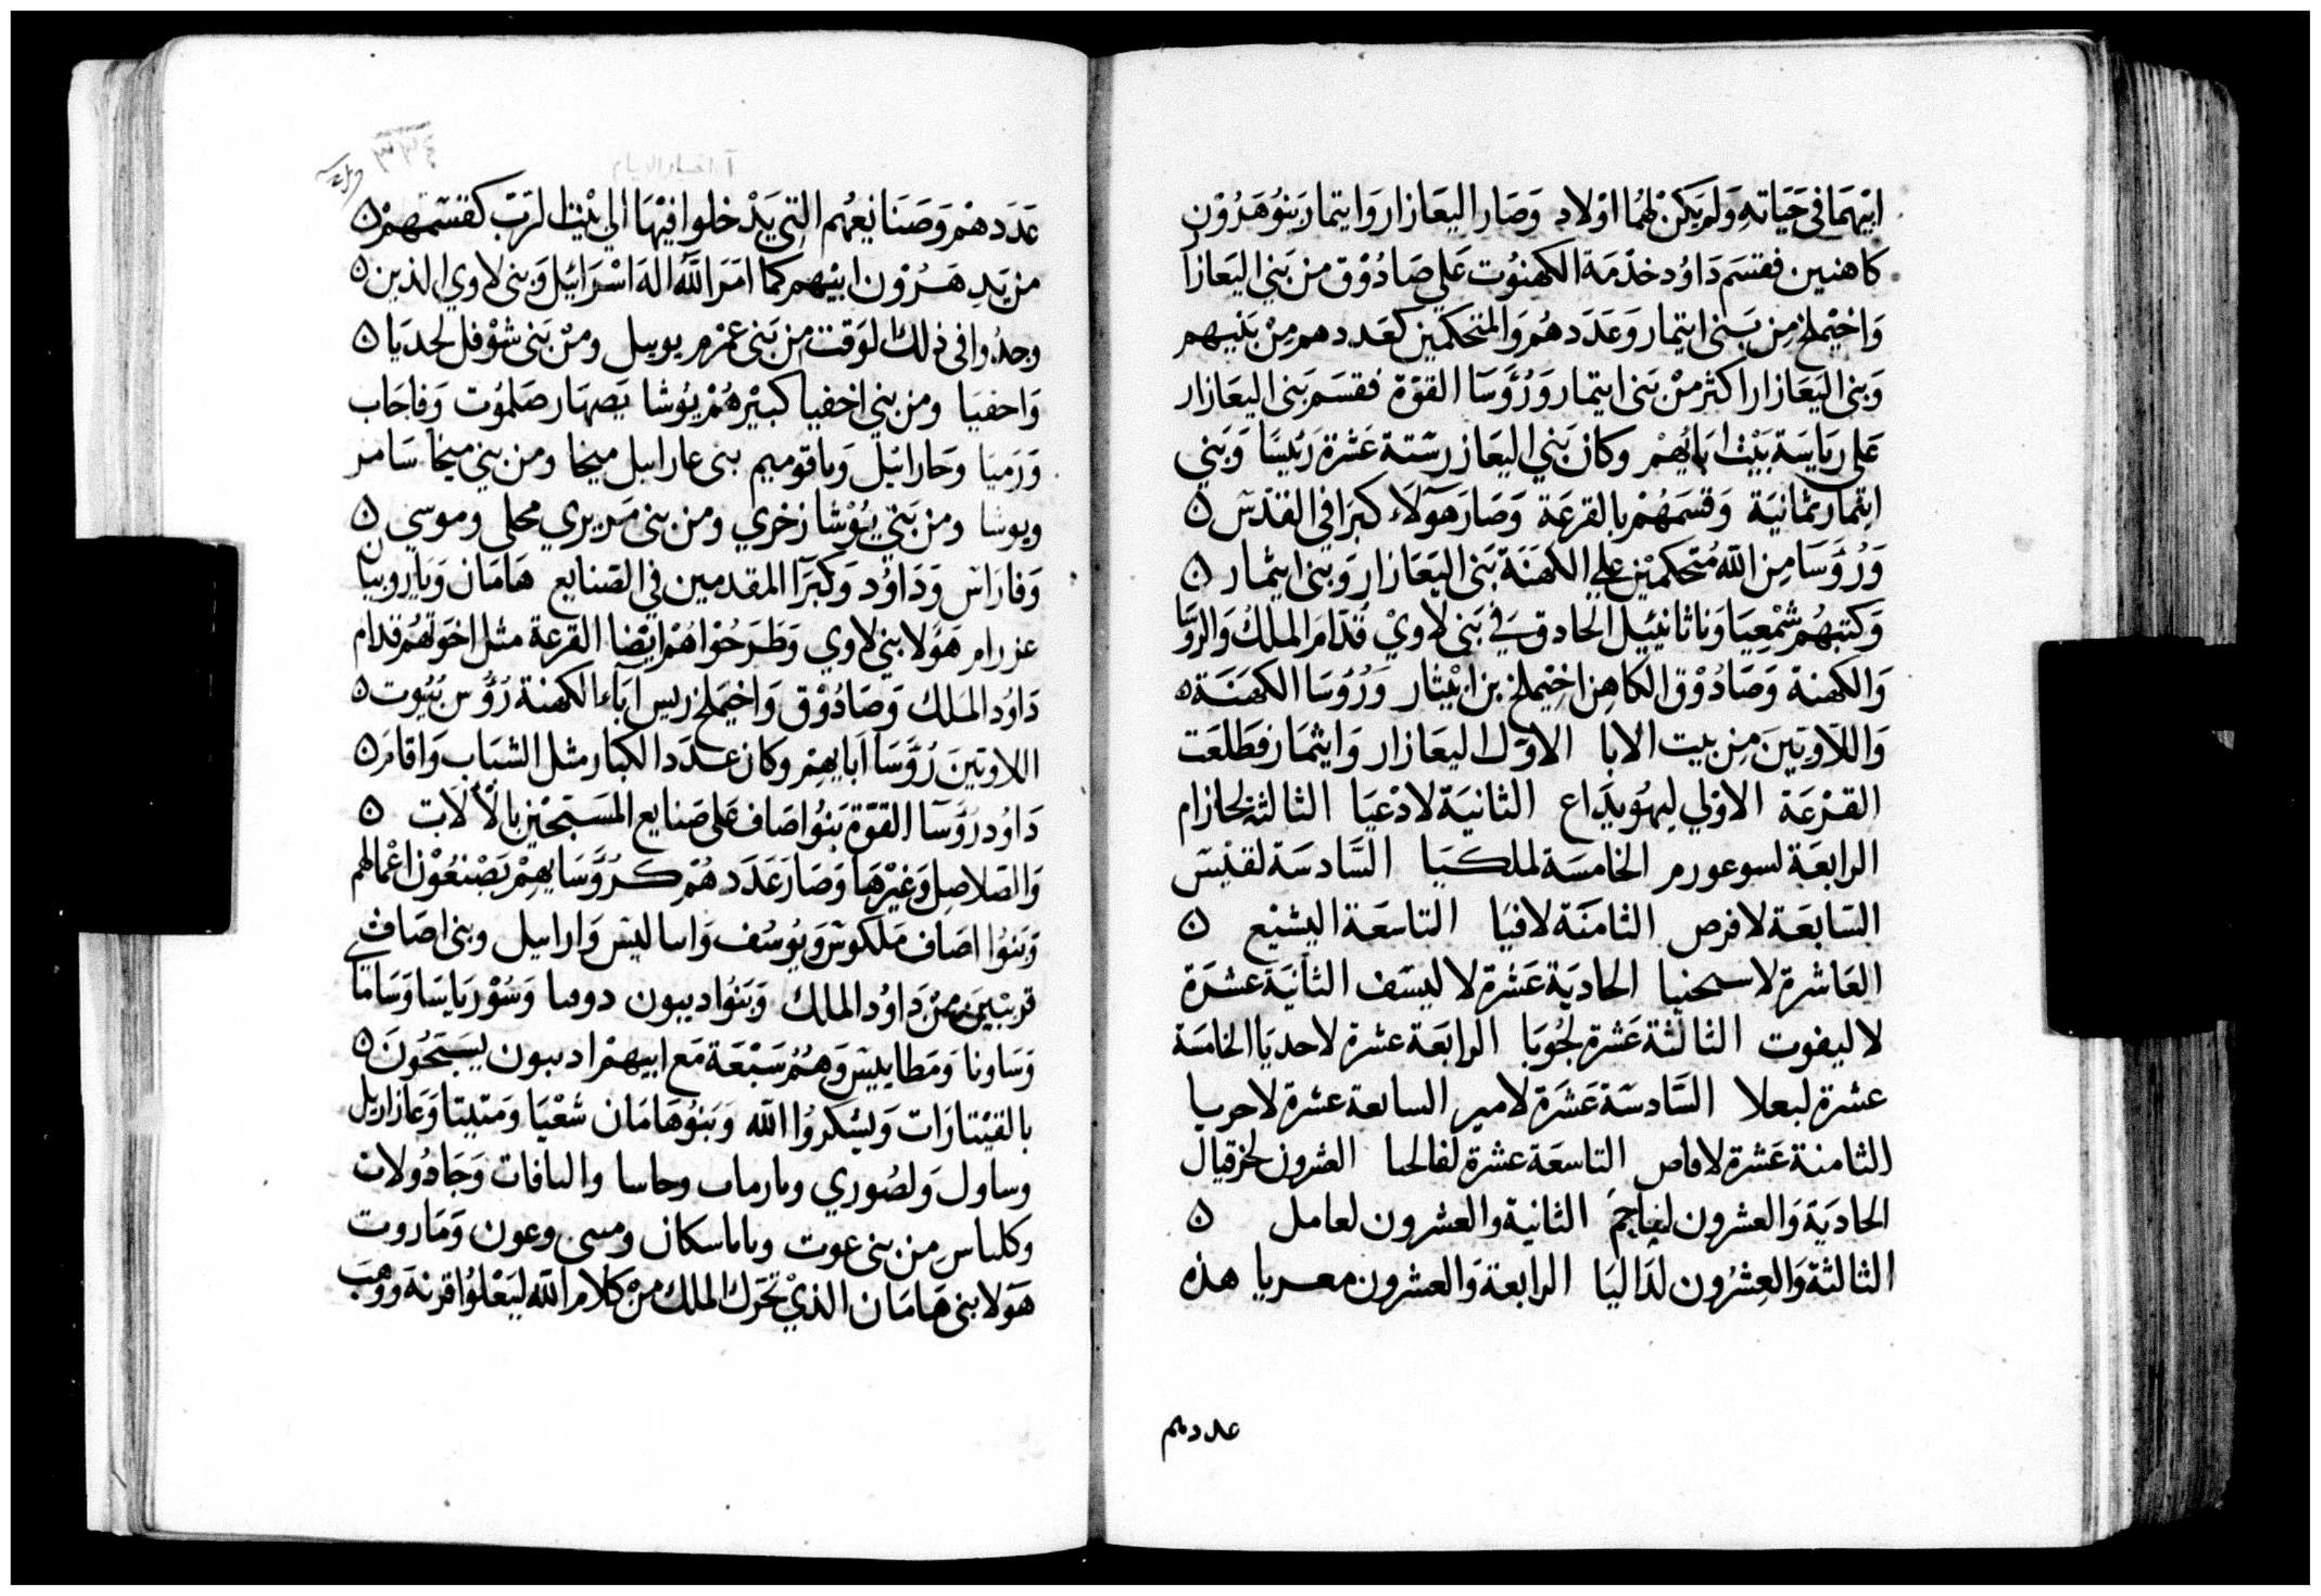 ابيهما في حَيَاتهِ وَلم يَكنْ لهُما اوْلاد وَصَار اليعَازار وَايتمار بَنوُ هَرُوْن
كاهنين فقسَم دَاوُد خدْمَة الكهنوُت عَلي صَادُوْق منْ بَني اليَعازا
وَاخيْملخ مِن بَني ايتمار وَعَدَدهُم وَالمتحكمين كعَددهم مِنْ بَنيهم
وَبني اليَعَازار اكثر منْ بَني ايتمار وَرُؤَسَا القوّة فقسَم بَني اليعَازار
عَلي رَيَاسَة بَيْت ابَايُهمْ وكان بَني اليعَازر ستة عَشرَة رَئيسًا وَبَني
ايتمار ثمانيَة وَقسَمَهُمْ بالقرعَة وَصَارَ هَوُلاَء كبرَا في القدْس ن
وَرُؤَسَا مِنَ الله مُتحكميْن علي الكهَنَة بَني اليَعَازار وَبني ايثمار ن
وَكتبَهُم شمْعيَا وَناثانيئيل الحادق في بَني لاَويْ قدّامَ الملكْ وَالروَسَا
وَالكهنة وَصَادُوْق الكاهِن اخيْملخ بن ابيْثار وَرُؤسَا الكهَنَة ن
وَاللاَويّينَ مِن بيت الابا الاوّل اليعَازار وَايثمَار فطَلعَت
القرْعَة الاوْلي ليهُويدَاع الثانيَة لادْعيَا الثالثة لحازام
الرابعَة لسوعورم الخامسَة لملكيَا السَّادسَة لقنيْس
السَّابعَة لافرص الثامنَة لافيَا التاسعَة اليشيْع ن
العَاشرة لاسحنيا الحاديَة عَشرَة لاليسَف الثانيَة عشرَة
لاليفوت الثالثة عَشرة لجُوبَا الرابعَة عشرة لاحديَا الخامسَة
عشرة لبعلا السَّادسَة عَشرَة لامير السابعة عشرة لاحريا
الثامنة عَشرة لافاص التاسعَة عشرة لفالحيا العشرون لحزقيال
الحاديَة وَالعشرون لفاجمَ الثانية والعشرون لعامل ن
الثالثة وَالعِشرُون لدَاليَا الرابعة وَالعشرون معريا هذه
عددهم
عَدَدهمْ وَصَنَايعهُم التي يَدْخلوا فيْهَا الي بَيْت الرَبّ كقسْمتهمْ ن
من يَدِ هَرُوْن ابيْهم كما امَرَ اللهُ الهَ اسْرَائيل وَبني لاوي الذين ن
وجدُوا في ذلك الوَقت مِن بَني عمْرم يوبيل ومنْ بَني شوْفل لحديَا ن
وَاحفيَا ومن بني اخفيا كبيْرهُمْ يوُشا يَصهَار صَلموُت وَفاجَاب
وَرَميَا وَحارائيْل وَياقوميم بني عارابيل ميخا ومن بني ميْخا سَامر
ويوشا ومن بَني يوُشا زخري ومن بني مَريري محلي وموسي ن
وَفارَاس وَدَاوُد وَكبرَا المقدمين في الصّنايع هَامَان وَيَاروبيان
عزرام هَوُلا بني لاوي وَطرَحُوْا هُمْ ايْضا القرعة مثل اخوَتهُم قدام
دَاوُد المَلك وَصَادُوْق وَاخيْملخ ريس ابَاء الكهنة رَؤُس بَيُوت ن
اللاويّينَ رُؤَسَا ابَايهمْ وكان عدَد الكبار مثل الشبَاب وَاقامَ ن
دَاوُد رؤَسَا القوّة بَنوُا اصَاف عَلي صَنايع المسَبحيْن بالاَلاَت ن
وَالصّلاصِل وَغيْرهَا وَصَارَ عَدَدهُمْ كرُؤَسَايهمْ يَصْنعُوْن اعْمالهُم
وَبَنوُا اصَاف مَلكوسَ وَيوُسُف وَاساليس وَارابيل وبني اصَاف
قريْبيَن منْ دَاوُد الملك وَبَنوُا ديبون دوسا وَسُوْريَا يَسَا وَسَاما
وَسَاونا وَمَطاييس وَهُمْ سَبْعَة مَع ابيهمْ اديبون يسَبّحُونَ ن
بالقيْتارَات وَيَشكروُا الله وَبَنوُ هَامَان شعْيَا وَمتيتا وَعَازاريل
وساول وَلصُوري وحاسا والياقات وَجَادُولات
وكلياس مِن بني عوت ومسي وعون وَمَاروت
هَوَلا بني هَامَان الذيْ تحَرّك الملك منْ كلام الله ليَعْلوُا قرنهَ ووَهبَ